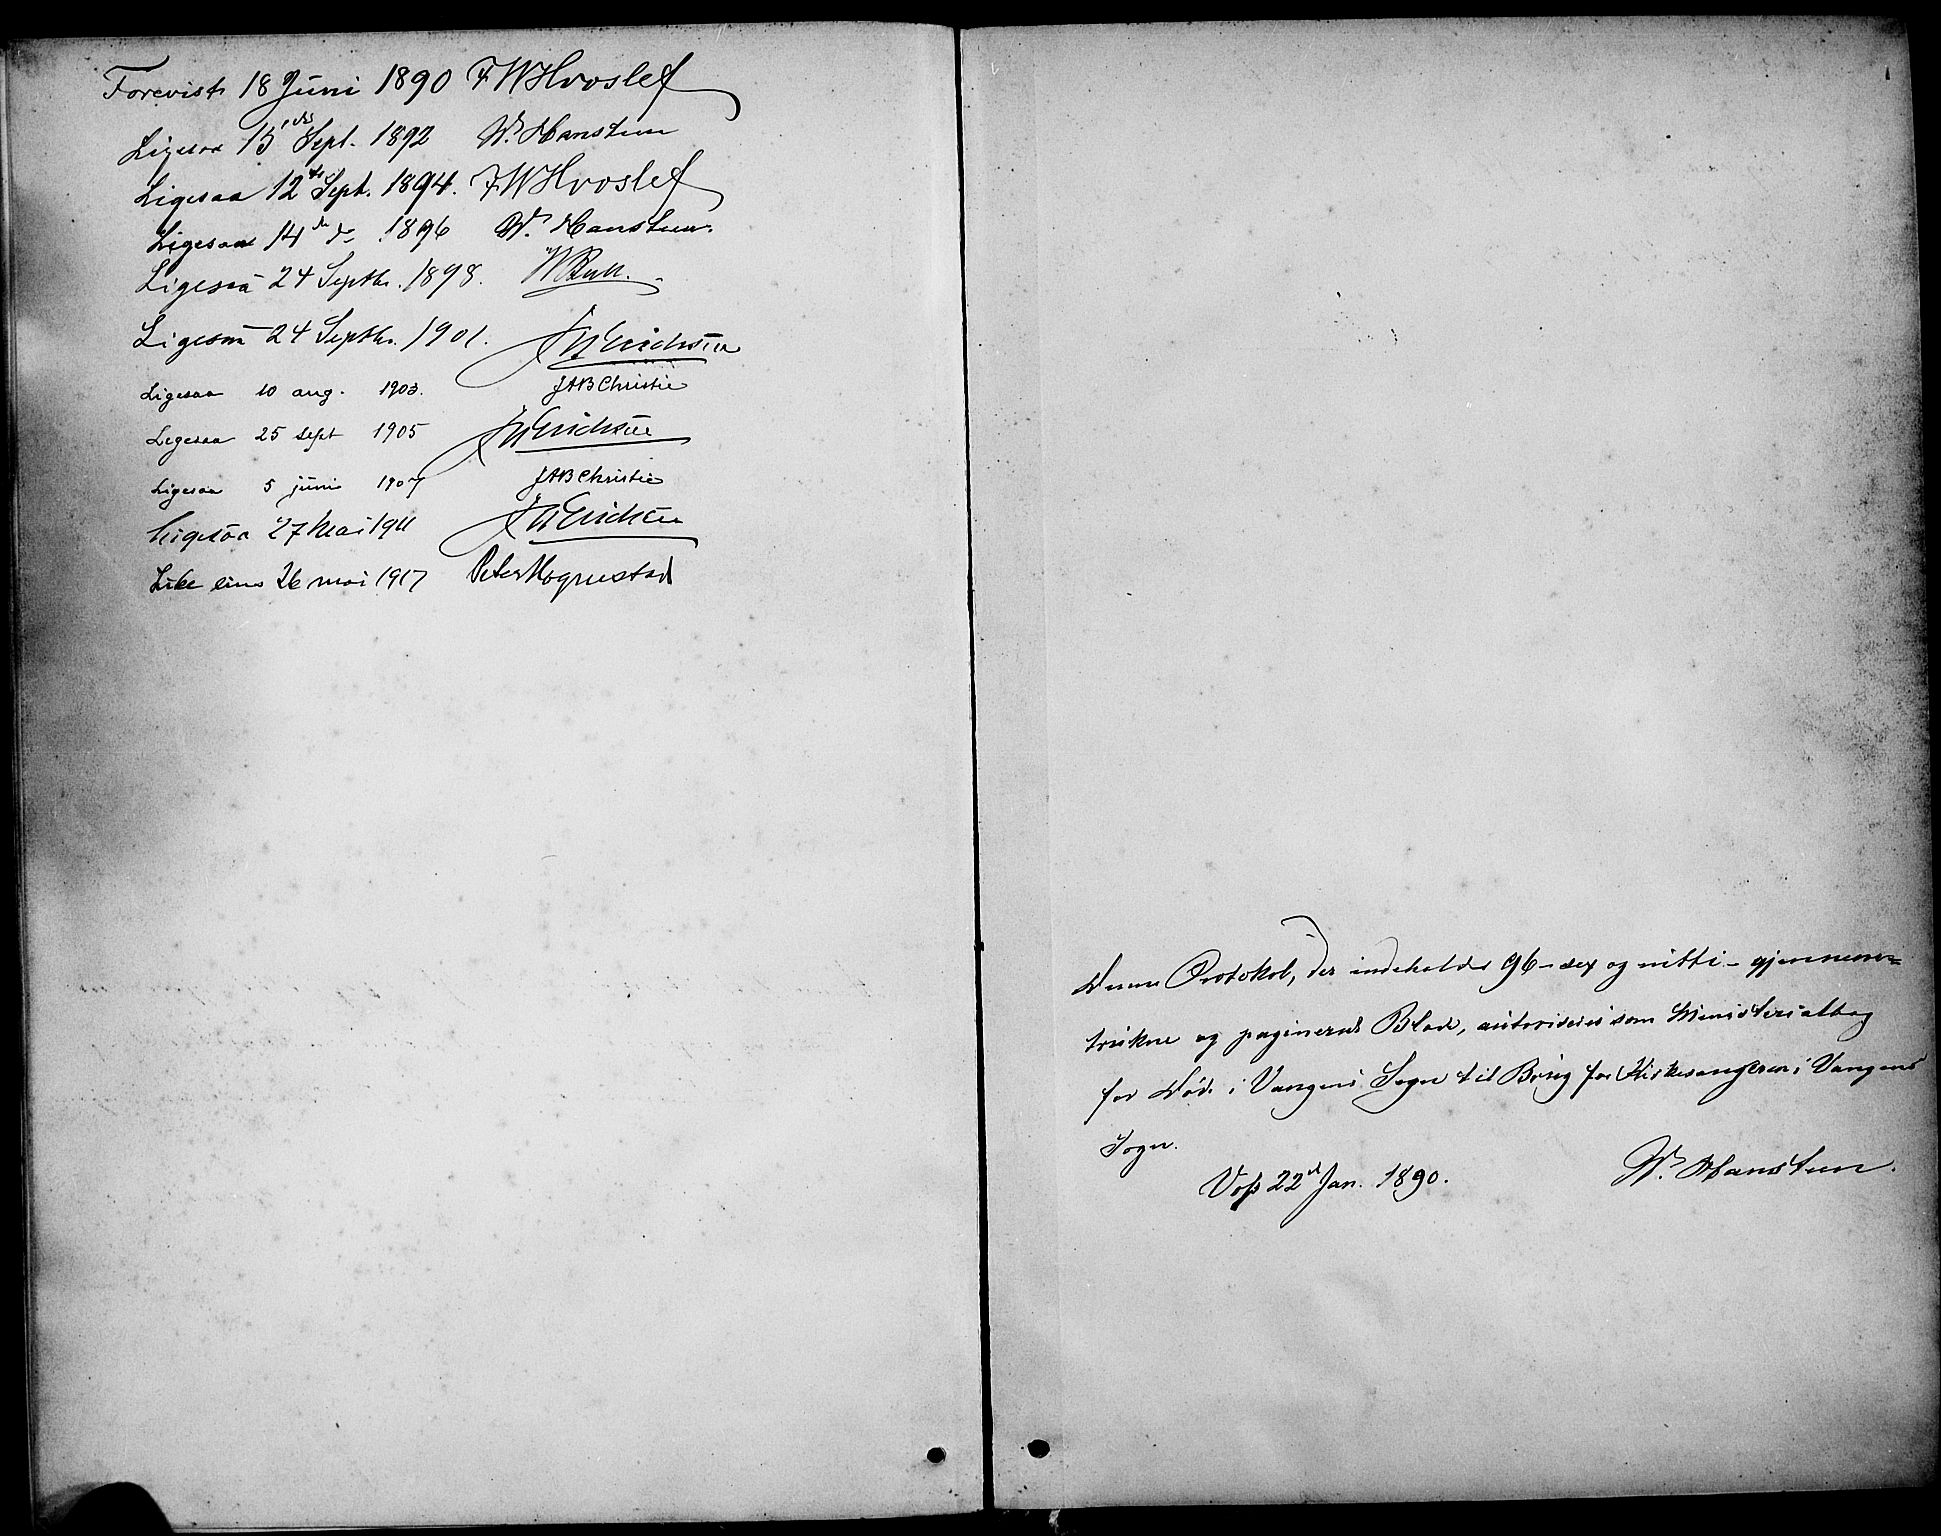 Forevist 18 Juni 1890 F W Hvoslef
Ligesaa 15de Sept. 1892 W. Hansteen
Ligesaa 12te Sept. 1894. F W Hvoslef
Ligesaa 14de do 1896 W. Hansteen.
Ligesaa 24 Septbr. 1898.
Ligesaa 24 Septbr. 1901. Erichsen
Ligesaa 10 aug. 1903. JAB Christie
Ligesaa 25 sept 1905 Erichsen
Ligesaa 5 juni 1907 JAB Christie
Ligesaa 27 Mai 1911 Erichsen
Like eins 26 mai 1917 Peter Hognestad
1
Denne Protokol, der indeholder 96 - sex og nitti - gjennem=
trukne og paginerede Blade, autoriseres som Ministerialbog
for Døde i Vangens Sogn til Brug for Kirkesangeren i Vangens
Sogn.
Voss 22de Jan. 1890. W. Hansteen.